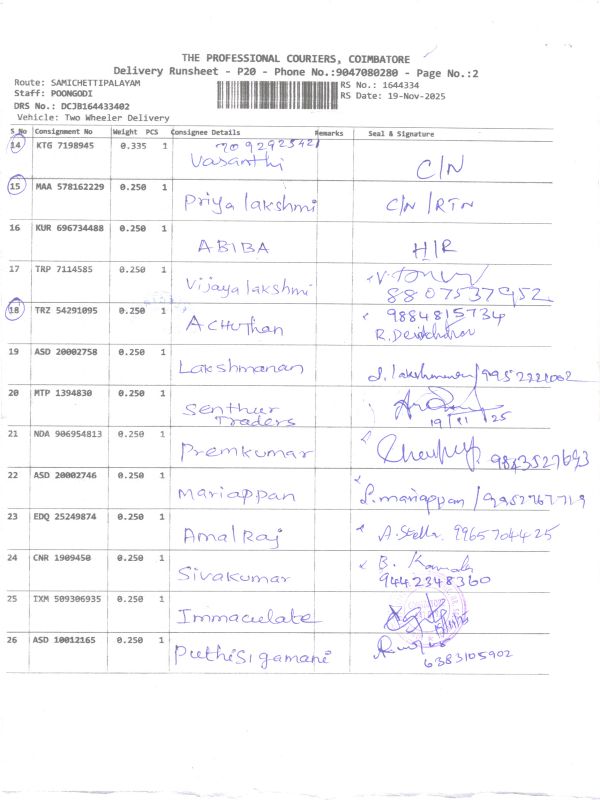 THE PROFESSIONAL COURIERS, COIMBATORE
Delivery Runsheet - P20 - Phone No.:9047080280 - Page No.:2
Route: SAMICHETTIPALAYAM
Staff: POONGODI
DRS No.: DCJB164433402
Vehicle: Two Wheeler Delivery
RS No.: 1644334
RS Date: 19-Nov-2025
S_No Consignment No Weight PCS Consignee Details Remarks Seal & Signature
14 KTG 7198945 0.335 1 7092925421 Vasanthi C/N
15 MAA 578162229 0.250 1 Priya lakshmi C/N /RTN
16 KUR 696734488 0.250 1 ABIBA H/R
17 TRP 7114585 0.250 1 Vijaya lakshmi 8807537952
18 TRZ 54291095 0.250 1 ACHUThan 9884815734
19 ASD 20002758 0.250 1 Lakshmanan 9952221002
20 MTP 1394830 0.250 1 Senthur Traders 19/11/25
21 NDA 906954813 0.250 1 Premkumar 9843527693
22 ASD 20002746 0.250 1 mariappan S.mariappan / 9952767719
23 EDQ 25249874 0.250 1 Amal Raj A.Stella 9965704425
24 CNR 1909450 0.250 1 Sivakumar B. Kamala 9442348360
25 IXM 509306935 0.250 1 Immaculate
26 ASD 10012165 0.250 1 PuthiSigamani 6383105902